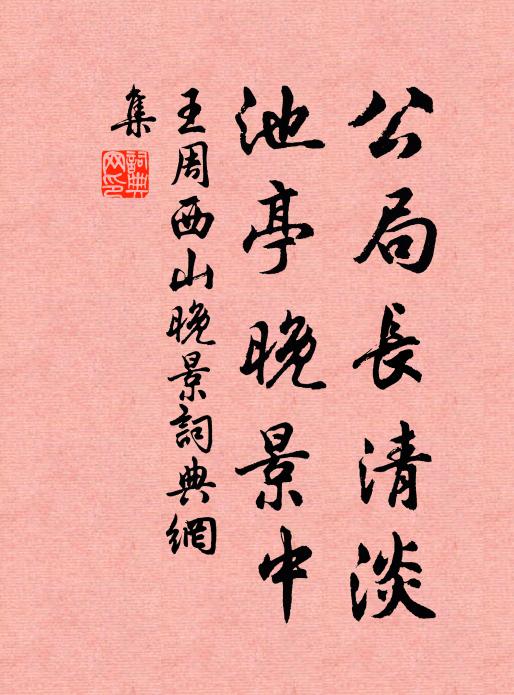 公局長清淡
池亭晚景中
王周西山晚景詞典網
集
詞典
网印